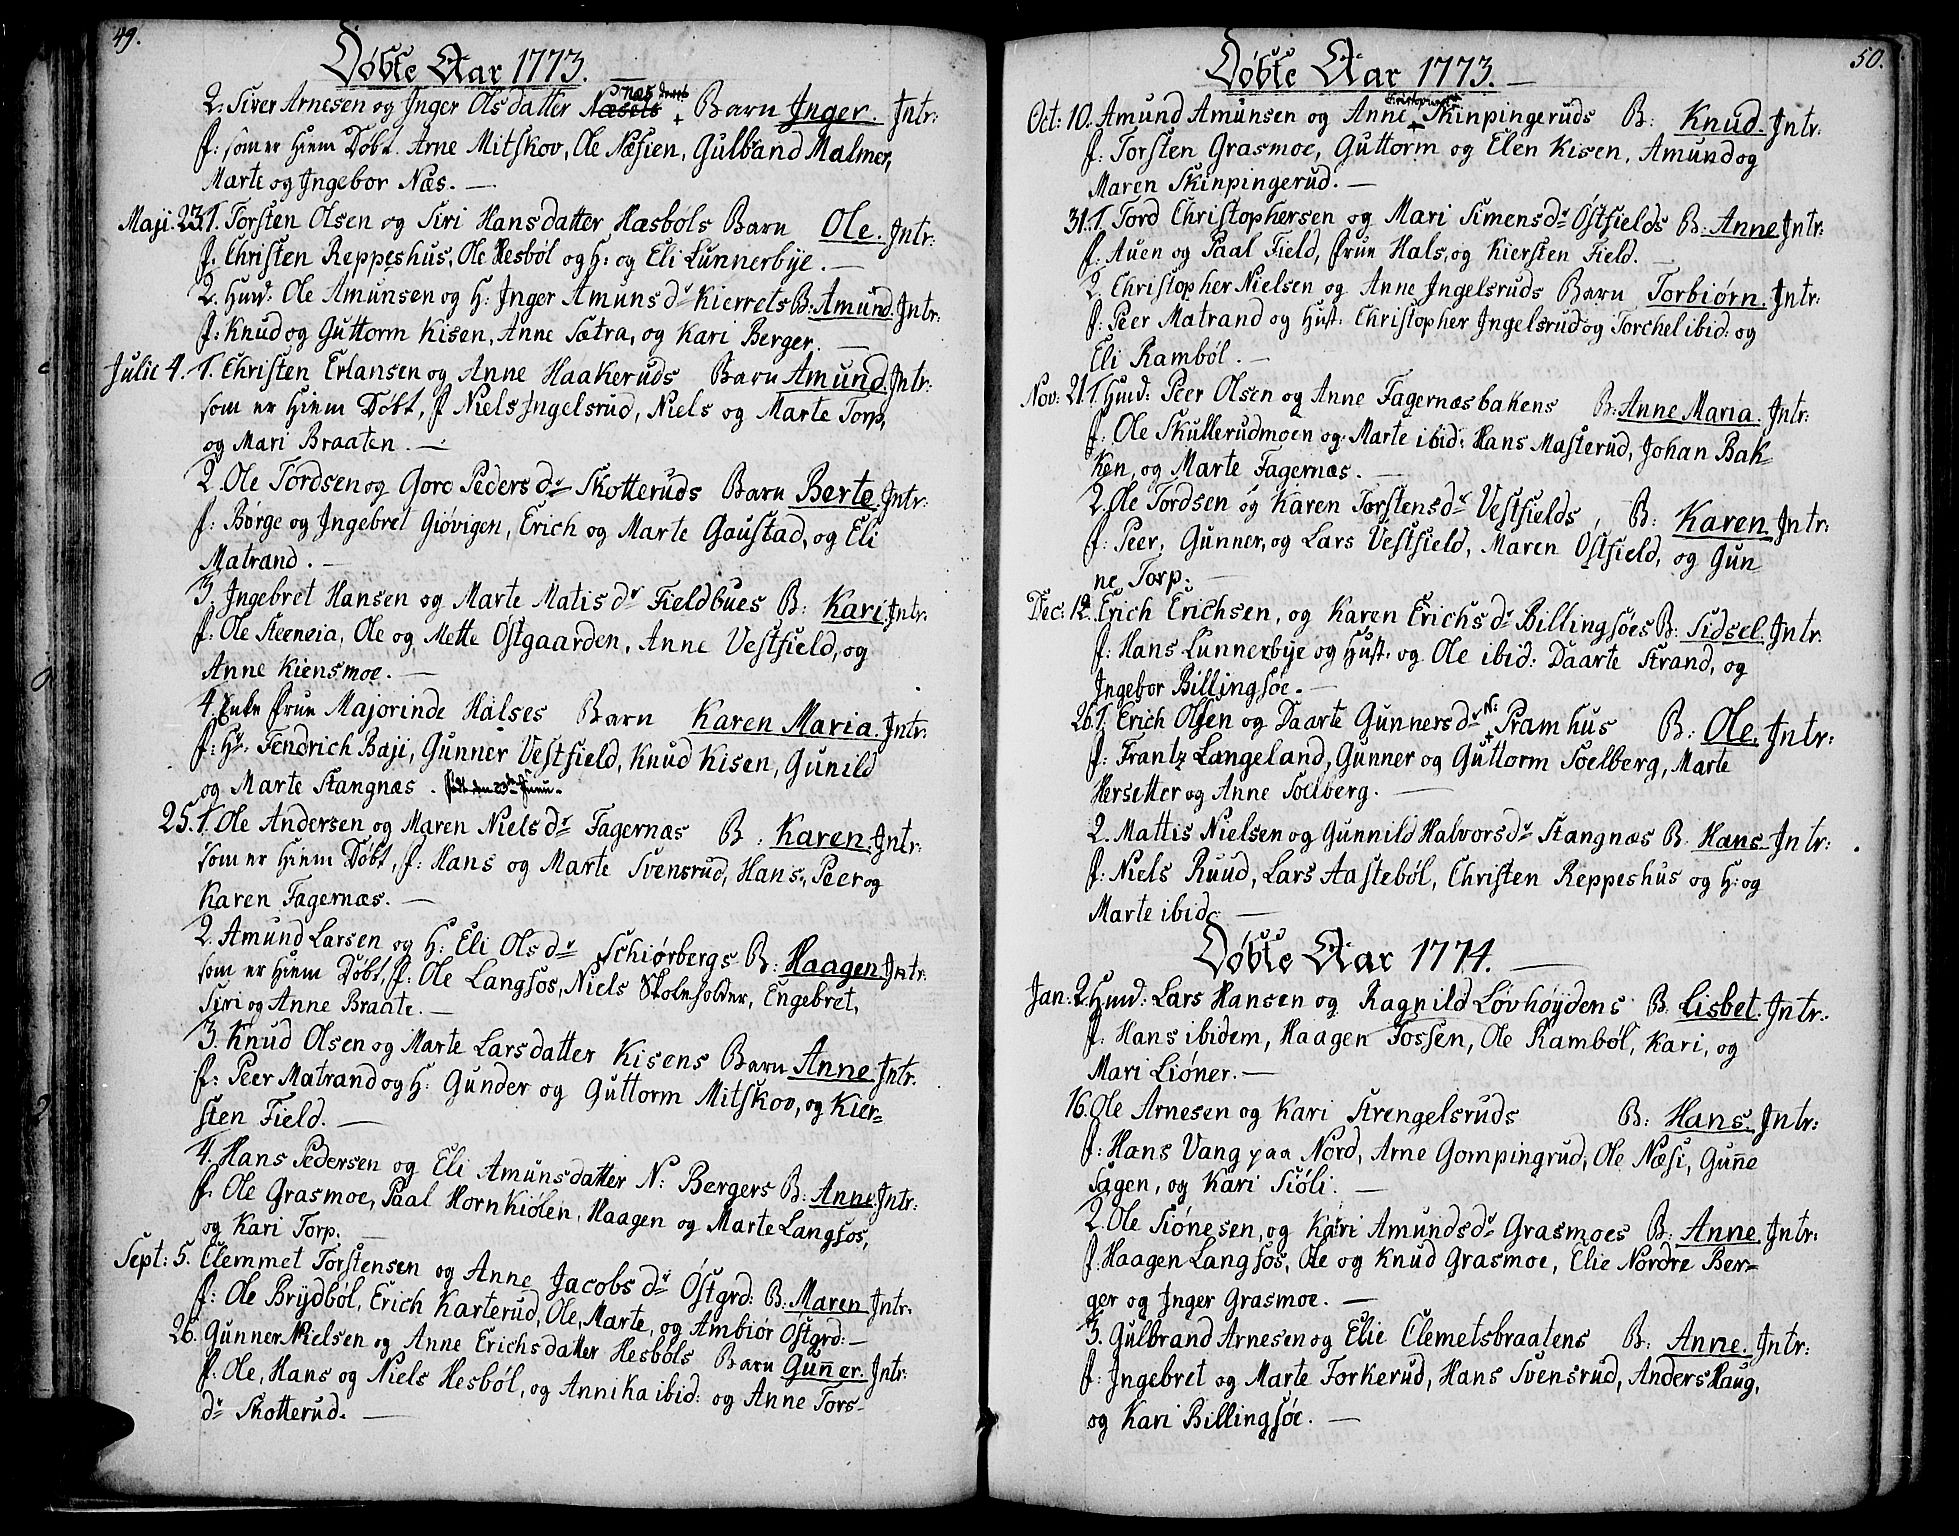 49.
Døbte Aar 1773.
2. Siver Arnesen og Inger Olsdatter Næsets Barn Inger. Intr:
f: som er Hiem Døbt. Arne Mitskov, Ole Næsien, Gulband Malmer,
Marte og Ingebor Næs. —
Maji. 23. 1. Torsten Olsen og Siri Hansdatter Hæsbøls Barn Ole. Intr:
f. Christen Reppeshus, Ole Hesbøl og H: og Eli Lunnerbye. —
2. Huusd: Ole Amunsen og H: Inger Amunsdr Kierrets B: Amund. Intr:
f: Knud og Guttorm Kisen, Anne Sætra, og Kari Berger. —
Julie 4. 1. Christen Erlansen og Anne Haakeruds Barn Amund. Intr:
som er Hiem Døbt, f Niels Ingelsrud, Niels og Marte Torp,
og Mari Braaten. —
2. Ole Tordsen og Goro Peders dr Skotteruds Barn Berte. Intr:
f: Børge og Ingebret Giøvigen, Erich og Marte Gaustad, og Eli
Matrand. —
3. Ingebret Hansen og Marte Matis dr Fieldbues B: Kari. Intr:
f: Ole Steeneia, Ole og Mette Østgaarden, Anne Vestfield, og
Anne Kiensmoe. —
4. Enke Frue Majorinde Halses Barn Karen Maria. Intr:
f: Hr. Fendrich Baji, Gunner Vestfield, Knud Kisen, Gunild
og Marte Stangnæs.
25. 1. Ole Andersen og Maren Niels dr Fagernæs B: Karen. Intr:
som er Hiem Døbt, f: Hans og Marte Svensrud, Hans, Peer og
Karen Fagernæs. —
2. Amund Larsen og H: Eli Ols dr Schiørbergs B: Haagen. Intr:
som er Hiem Døbt, f: Ole Langsos, Niels Skoleholder, Engebret,
Siri og Anne Braate. —
3. Knud Olsen og Marte Larsdatter Kisens Barn Anne. Intr.
f: Peer Matrand og H: Gunder og Guttorm Mitskov, og Kier=
sten Field. —
4. Hans Pedersen og Eli Amunsdatter N: Bergers B: Anne. Intr:
f. Ole Grasmoe, Paal Hornkiølen, Haagen og Marte Langsos,
og Kari Torp. —
Sept: 5. Clemmet Torstensen og Anne Jacobs dr Østgrd: B: Maren Intr:
f: Ole Brydbøl, Erich Karterud, Ole, Marte, og Ambiør Østgrd: —
26. Gunner Nielsen og Anne Erichsdatter Hesbøls Barn Gun̄er. Intr:
f. Ole, Hans og Niels Hesbøl, og Annika ibid: og Anne Tors-
dr Skotterud. —
50.
Døbte Aar 1773. —
Oct: 10. Amund Amunsen og Anne Skinpingeruds B: Knud. Intr:
f: Torsten Grasmoe, Guttorm og Elen Kisen, Amund og
Maren Skinpingerud. —
31. 1. Tord Christophersen og Mari Simensdr Østfields B: Anne Intr:
f: Auen og Paal Field, frue Hals, og Kiersten Field. —
2. Christopher Nielsen og Anne Ingelsruds Barn Torbiørn. Intr:
f: Peer Matrand og Hust: Christopher Ingelsrud og Torchel ibid: og
Eli Rambøl. —
Nov: 21. 1. Huusd: Peer Olsen og Anne Fagernæsbakens B: Anne Maria. Intr:
f: Ole Skullerudmoen og Marte ibid: Hans Masterud, Johan Bak-
ken, og Marte Fagernæs. —
2. Ole Tordsen og Karen Torstensdr Vestfields, B: Karen. Intr:
f: Peer, Gunner, og Lars Vestfield, Maren Østfield, og Gun-
ne Torp. —
Dec: 12. Erich Erichsen, og Karen Erichsdr Billingsøes B: Sidsel. Intr:
f: Hans Lunnerbye og Hust: og Ole ibid: Daarte Strand, og
Ingebor Billingsøe. —
26. 1. Erich Olsen og Daarte Gunners dr N: Pramhus B: Ole. Intr:
f: Frantz Langeland, Gunner og Guttorm Soelberg, Marte
Hersetter og Anne Soelberg. —
2. Mattis Nielsen og Gunnild Halvorsdr Stangnæs B. Hans. Intr:
f: Niels Ruud, Lars Aastebøl, Christen Reppeshus og H: og
Marte ibid. —
Døbte Aar 1774. —
Jan: 2. Huusd: Lars Hansen og Ragnild Løvhøydens B. Lisbet. Intr:
f: Hans ibidem, Haagen Fossen, Ole Rambøl, Kari, og
Mari Liøner. —
16. Ole Arnesen og Kari Strengelsruds B: Hans. Intr:
f: Hans Vang paa Nord, Arne Gompingrud, Ole Næsi, Gun̄e
Sagen, og Kari Siøli. —
2. Ole Siønesen, og Kari Amundsdr Grasmoes B: Anne. Intr:
f. Haagen Langsos, Ole og Knud Grasmoe, Elie Nordre Ber-
ger og Inger Grasmoe. —
3. Gulbrand Arnesen og Elie Clemetsbraatens B: Anne. Intr:
f: Ingebret og Marte Torkerud, Hans Svensrud, Anders Haug,
og Kari Billingsøe. —